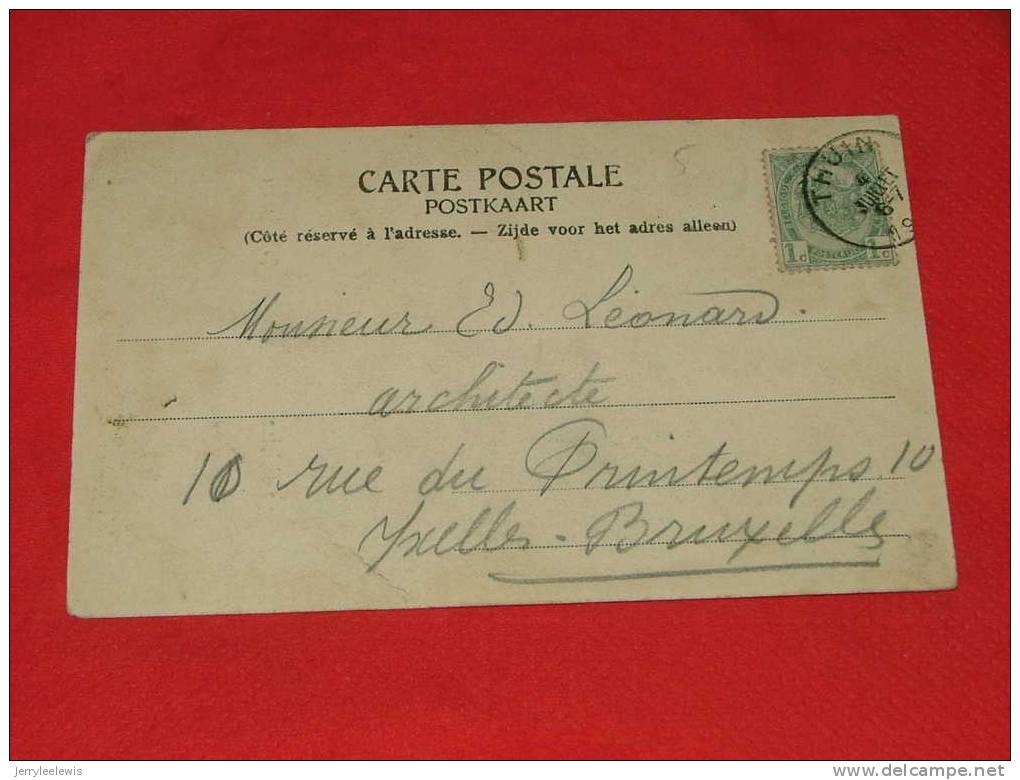 5
CARTE POSTALE
POSTKAART
(Côté réservé à l'adresse. — Zijde voor het adres alleen)
THUIN
JUILLET
6-7
1c 1c
Monsieur Ed. Léonard.
architecte
10 rue du Printemps 10
Ixelles - Bruxelles
jerryleelewis
www.delcampe.net